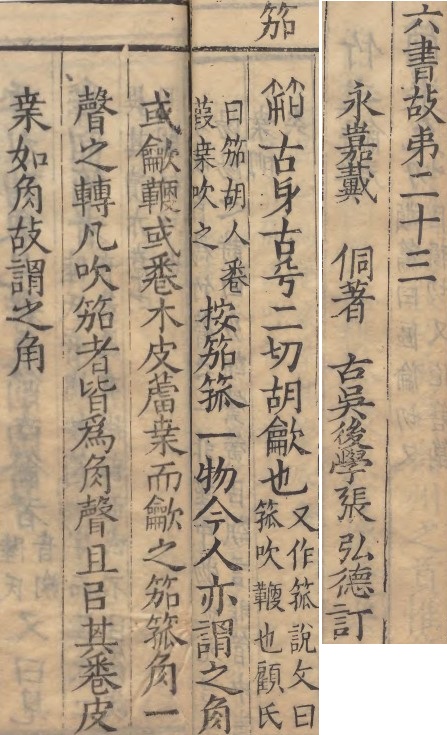 六書故弟二十三
永嘉戴 侗著 古吳後學張弘德訂
笳
䈔古身古㕦二切胡龡也又作箛說文曰
箛吹鞭也顧氏
曰笳胡人卷
葭葉吹之
按笳箛一物今人亦謂之角
或龡鞭或卷木皮蘆葉而龡之笳箛角一
聲之轉凡吹笳者皆爲角聲且㠯其卷皮
葉如角故謂之角